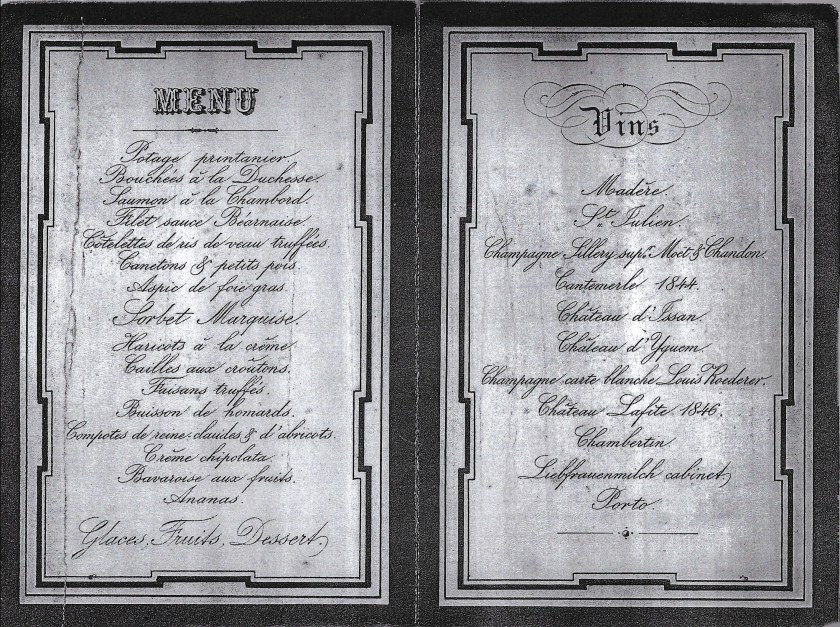 MENU
Potage printanier.
Bouchées à la Duchesse.
Saumon à la Chambord.
Filet sauce Béarnaise.
Côtelettes de ris de veau truffées.
Canetons & petits pois.
Aspic de foie gras.
Sorbet Marquise.
Haricots à la crême.
Cailles aux croûtons.
Faisans truffés.
Buisson de homards.
Compotes de reine-claudes & d'abricots.
Crême chipolata.
Bavaroise aux fruits.
Ananas.
Glaces, Fruits, Dessert.
Vins
Madère.
St. Julien.
Champagne Sillery supr. Moët & Chandon.
Cantemerle 1844.
Château d'Issan.
Château d'Yquem.
Champagne carte blanche Louis Roederer.
Château Lafite 1846.
Chambertin.
Liebfrauenmilch cabinet.
Porto.